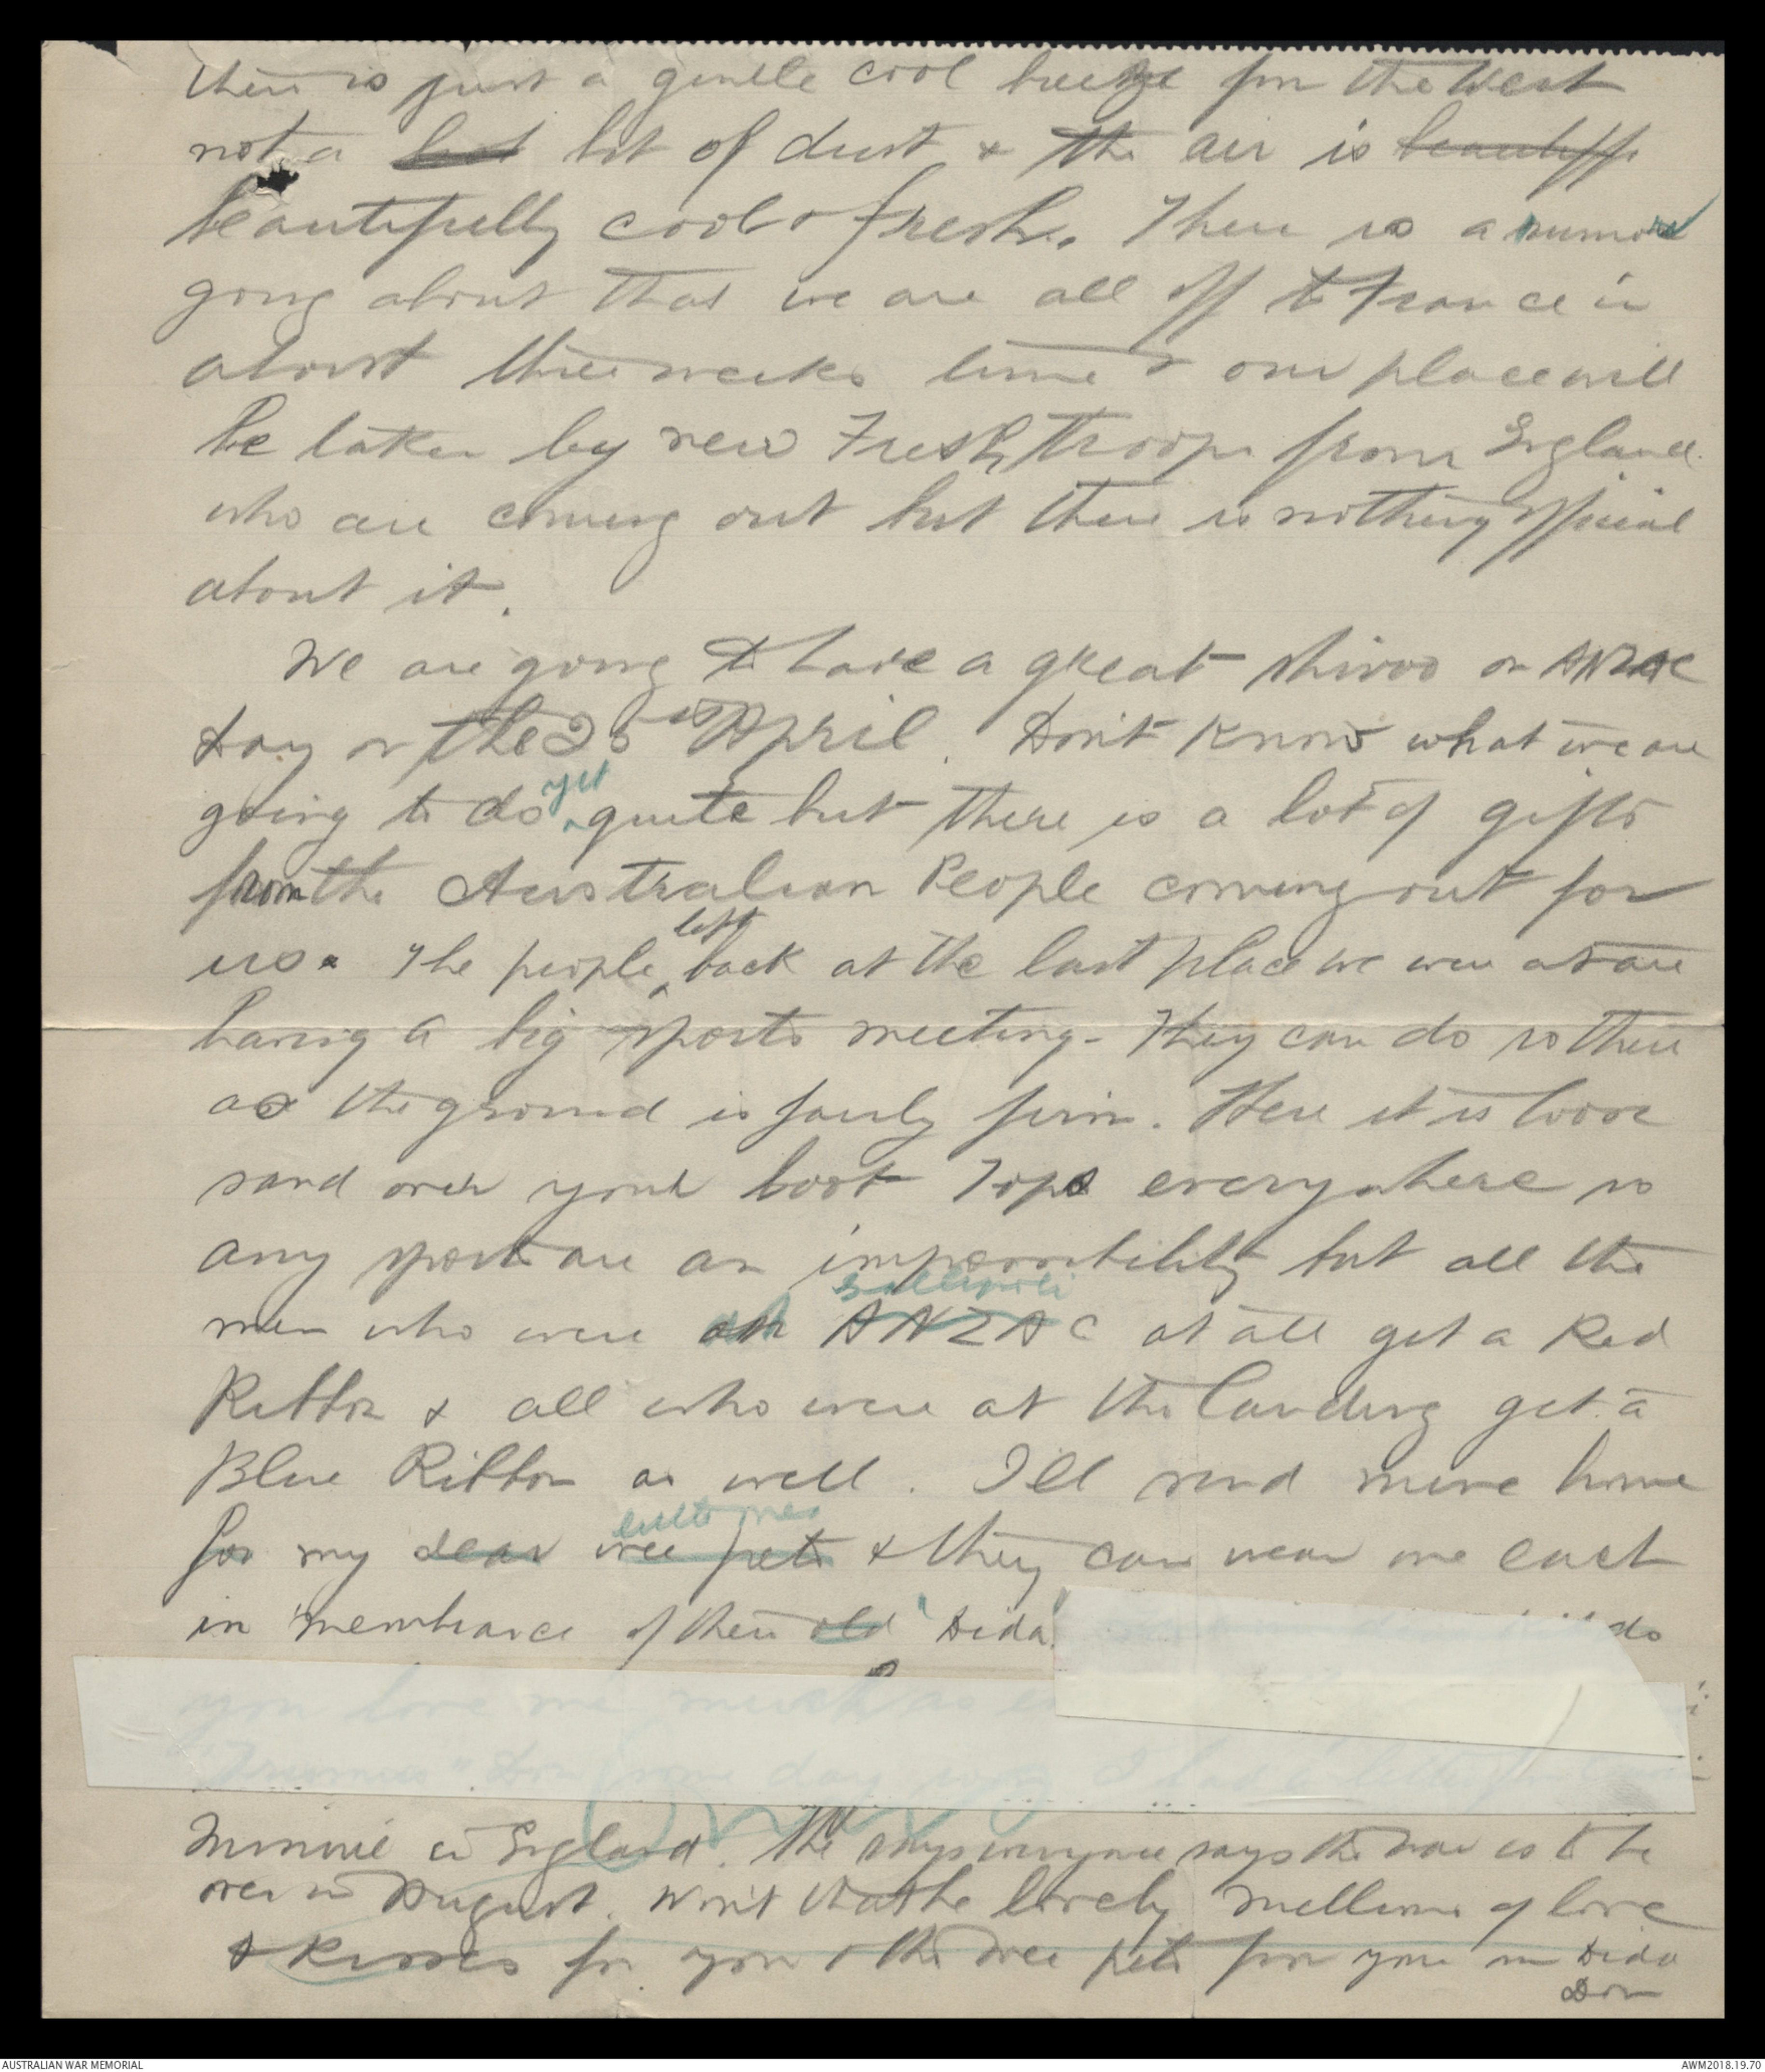 there is just a gentle cool breeze frm the West
not a lot of dust & the air is
beautifully cool & fresh. There is a rumour
going about that we are all off to France in
about three weeks time & our place will
be taken by new Fresh troops from England
who are coming out but there is nothing official
about it.
We are going to have a great shivoo on ANZAC
Day or the 25th April. Don't know what we are
going to do yet quite but there is a lot of gifts
from the Australian People coming out for
us. The people left back at the last place we were at are
having a big sports meeting. They can do so there
as the ground is fairly firm. Here it is loose
sand over your boot Tops everywhere so
any sports are an impossibility but all the
Gallipoli
men who were on ANZAC at all get a Red
Ribbon & all who were at the landing get a
Blue Ribbon as well. I'll send mine home
little ones
for my dear wee pets & they can wear one each
in 'membrance of their old "Dida" do
you love me much as
day I had a letter
Minnie in England. The says the war is to be
over in August. Won't that be lovely Millions of love
& kisses for you & the wee pets from your own Dida
Don
AUSTRALIAN WAR MEMORIAL
AWM2018.19.70